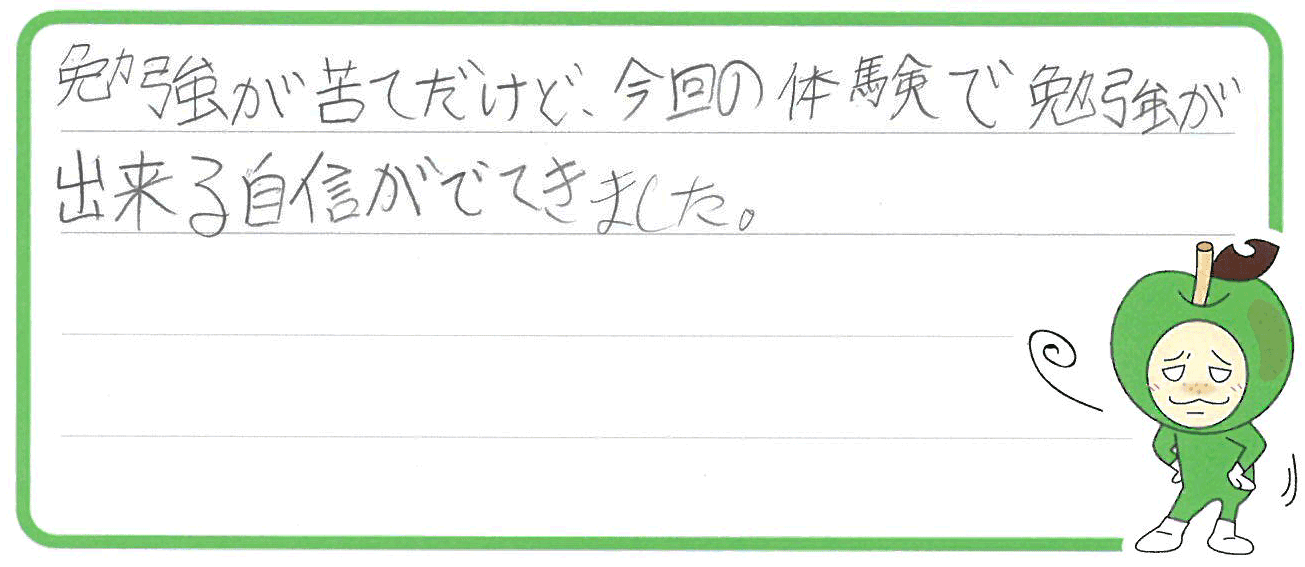 勉強が苦てだけど、今回の体験で勉強が
出来る自信がでてきました。